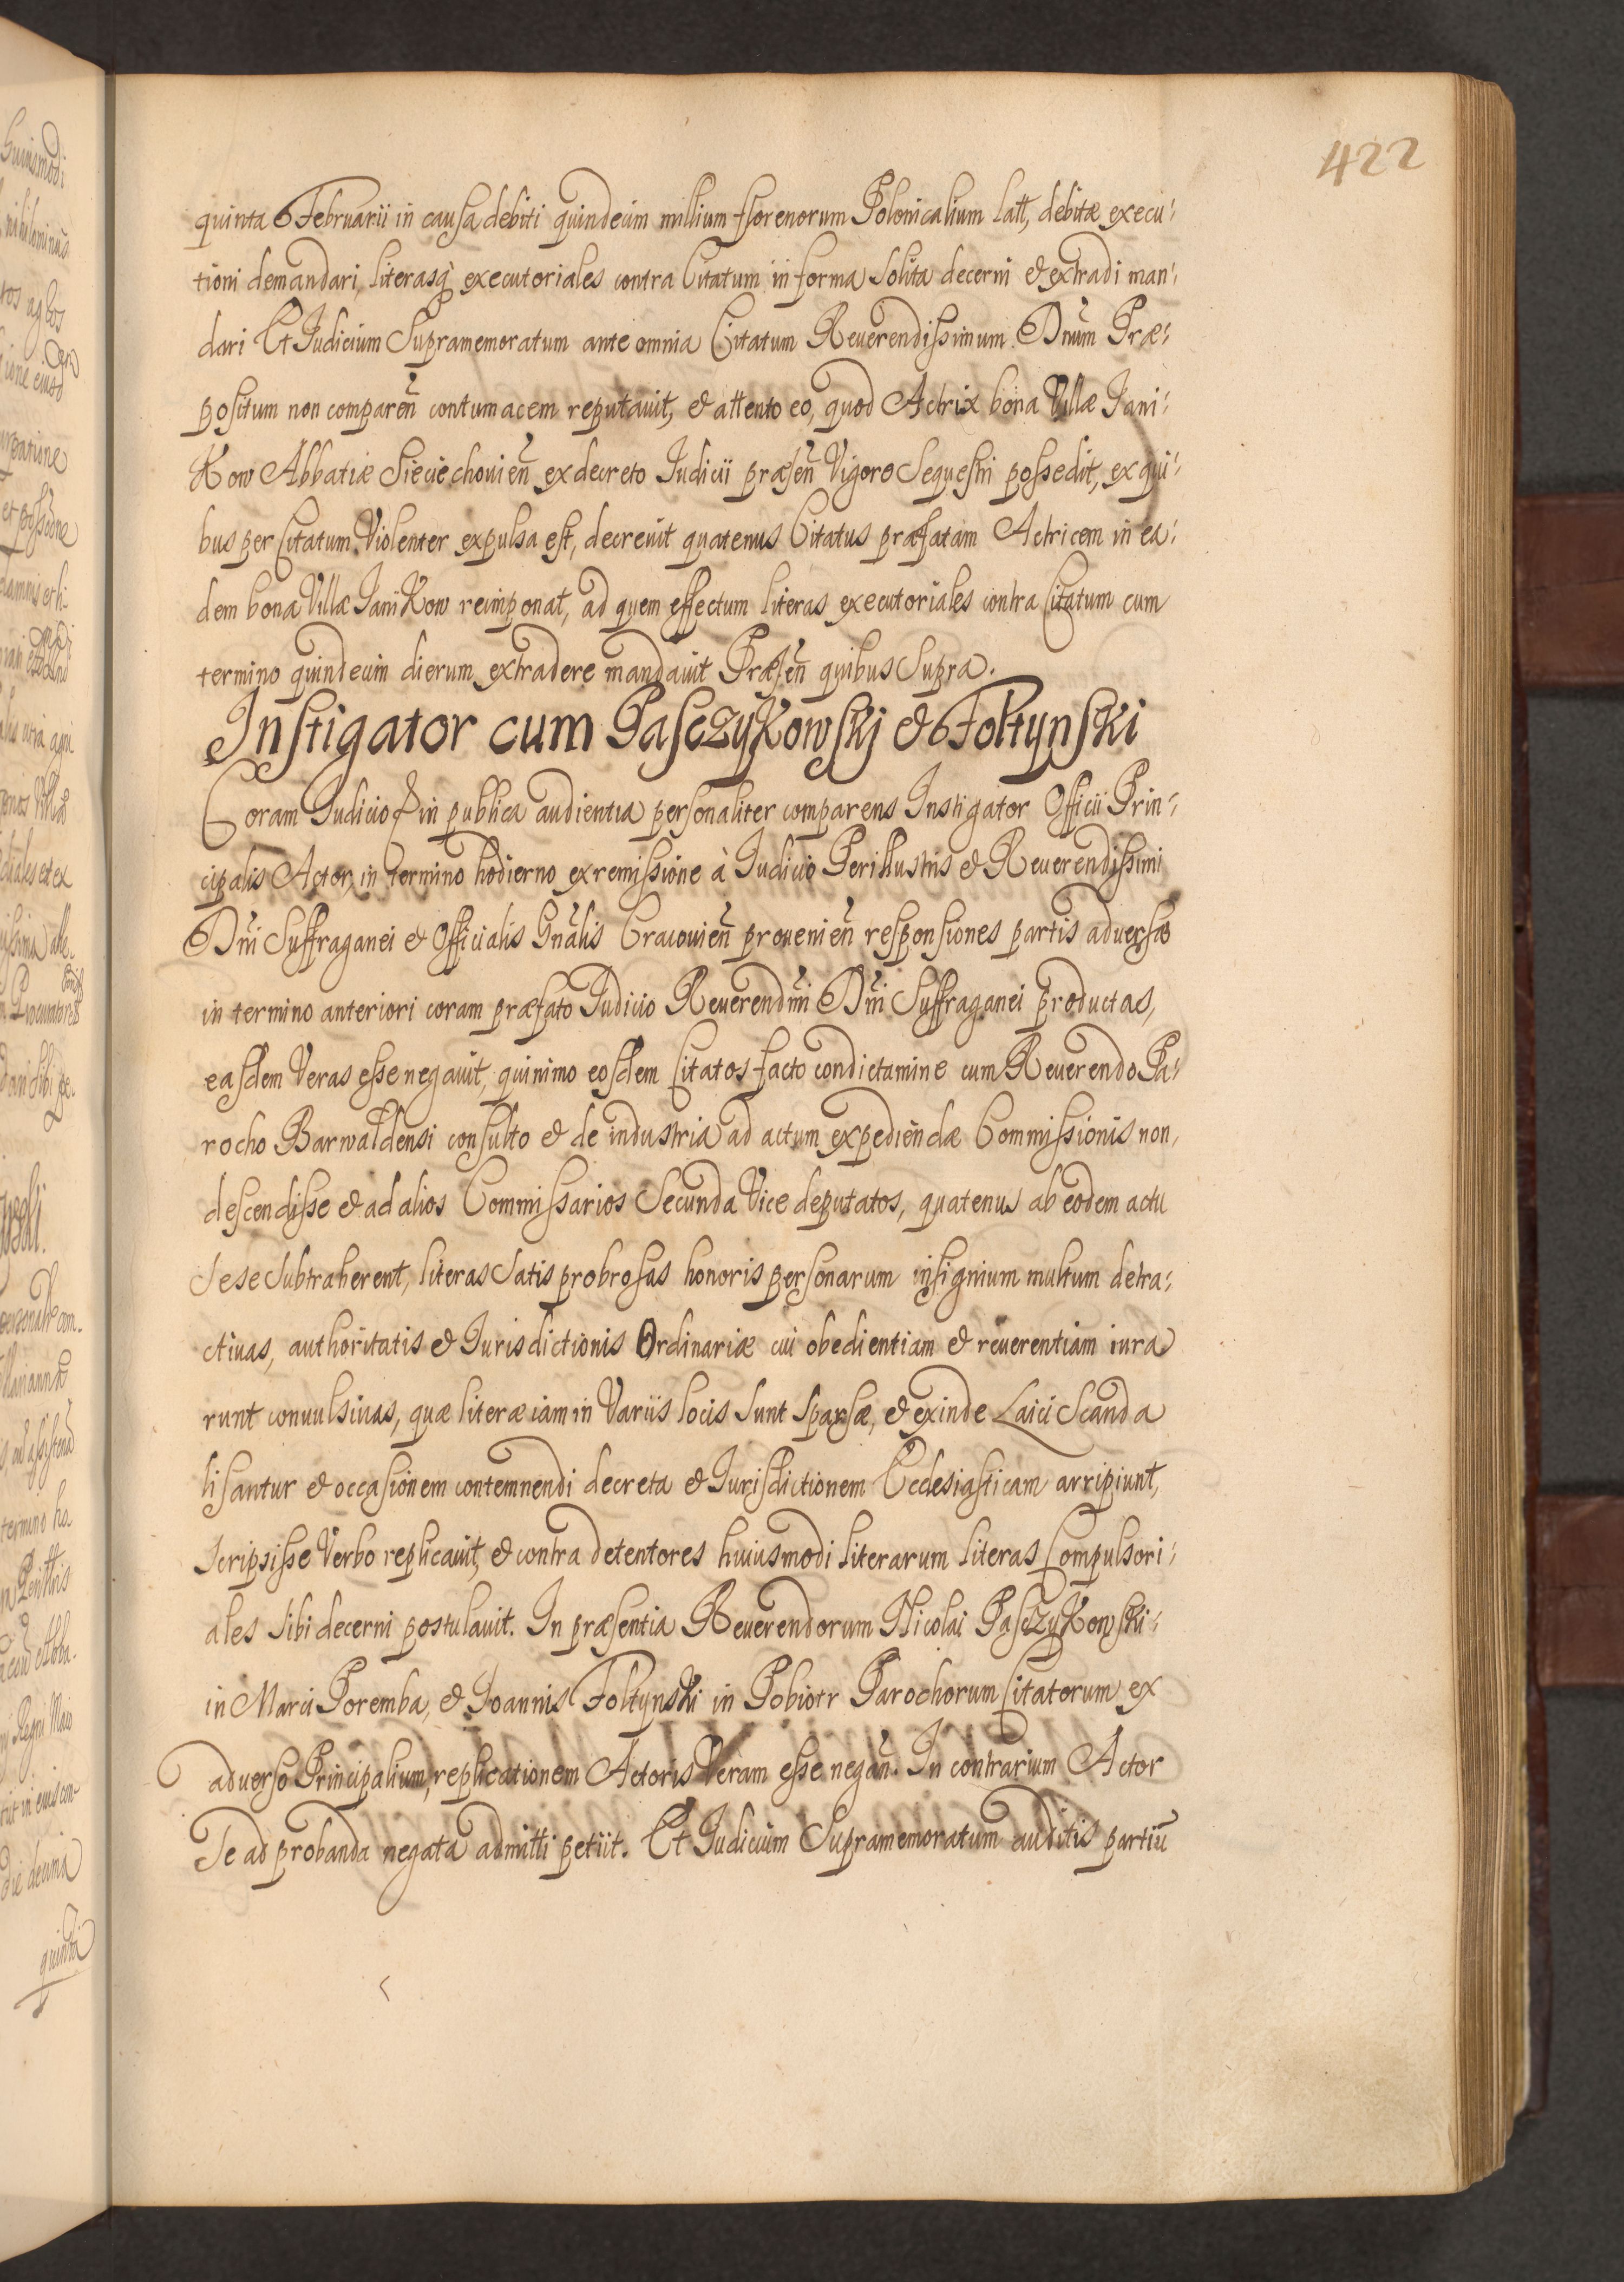 422
quinta Februarii in causa debiti quindecim millium florenorum Polonicalium latt, debitæ execu:
tioni demandari, literasq; executoriales contra Citatum in forma solita decerni et extradi man:
dari Et Iudicium Supramemoratum ante omnia Citatum Reuerendissimum Dnum Præ:
positum non comparen̄ contumacem reputauit, et attento eo, quod Actrix bona Villæ Iani:
Kow Abbatiæ Sieciechouien̄ ex decreto Iudicii præsen̄ Vigore Sequestri possedit, ex qui:
bus per Citatum Violenter expulsa est, decreuit quatenus Citatus præfatam Actricem in ea:
dem bona Villæ IaniKow reimponat, ad quem effectum literas executoriales contra Citatum cum
termino quindecim dierum extradere mandauit Præsen̄ quibus Supra.
Instigator cum PasczyKowskj et Foltynski
Coram Iudicio & in publica audientia personaliter comparens Instigator Officii Prin:
cipalis Actor, in termino hodierno ex remissione à Iudicio Perillustris et Reuerendissimi
Dni Suffraganei et Officialis Gnalis Cracouien̄ prouenien̄ responsiones partis aduersæ
in termino anteriori coram præfato Iudicio Reuerendmi Dni Suffraganei productas,
easdem Veras esse negauit, quinimo eosdem Citatos facto condictamine cum Reuerendo Pa:
rocho Barwaldensi consulto et de industria ad actum expediendæ Commissionis non
descendisse et ad alios Commissarios Secunda Vice deputatos, quatenus ab eodem actu
sese subtraherent, literas satis probrosas honoris personarum insignium multum detra:
ctiuas, authoritatis et Iurisdictionis Ordinariæ cui obedientiam et reuerentiam iura
runt conuulsiuas, quæ literæ iam in Variis locis sunt sparsæ, et exinde Laici Scanda
lisantur et occasionem contemnendi decreta et Iurisdictionem Ecclesiasticam arripiunt,
scripsisse Verbo replicauit, et contra detentores huiusmodi literarum literas Compulsori:
ales sibi decerni postulauit. In præsentia Reuerendorum Nicolai PasczyKowski:
in Marci Poremba, et Ioannis Foltynski in Pobiotr Parochorum Citatorum ex
aduerso Principalium, replicationem Actoris Veram esse negan̄. In contrarium Actor
Se ad probanda negata admitti petiit. Et Iudicium Supramemoratum auditis partiū